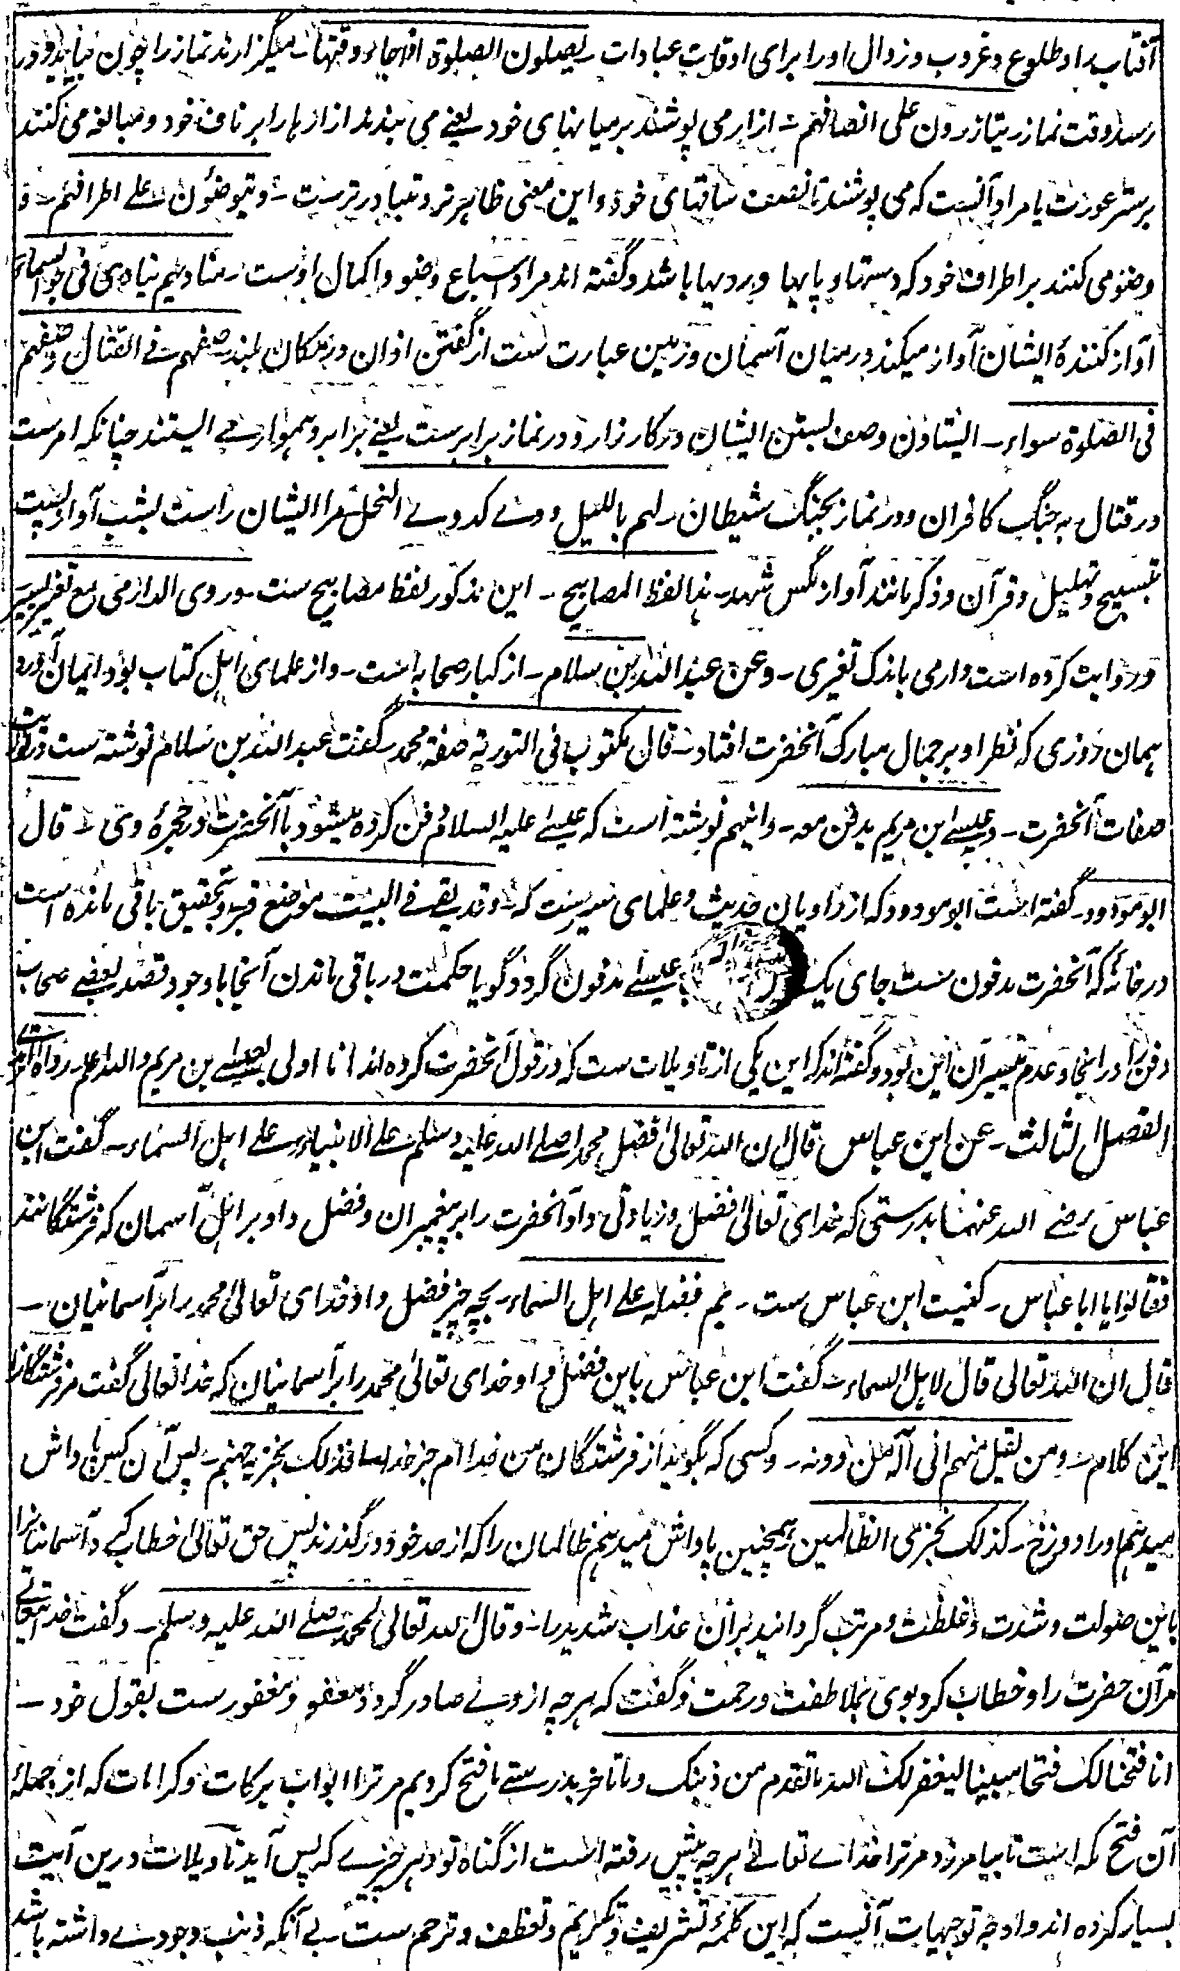 آفتاب را و طلوع و غروب و زوال او را برای اوقات عبادات ـ یصلون الصلوة اذا جاء وقتها ـ میگزارند نماز را چون بیاید و در
رسد وقت نماز ـ یتازرون علی انصافهم ـ ازار می پوشند بر میانهای خود یعنے می بندند ازارها برابر ناف خود و مبالغه می کنند
بر ستر عورت یا مراد آنست که می پوشند تا نصف ساقهای خود و این معنی ظاهرتر و متبادرترست ـ و یتوضئون علے اطرافهم ـ و
وضو می کنند بر اطراف خود که دستها و پایها و رویها باشد و گفته اند مراد اسباغ وضو و اکمال اوست ـ منادیهم ینادی فی جو السماء
آواز کنندهٔ ایشان آواز میکند در میان آسمان و زمین عبارت ست از گفتن اذان در مکان بلند ـ صفهم فے القتال و صفهم
فی الصلوة سواء ـ ایستادن و صف بستن ایشان در کارزار و در نماز برابرست یعنے برابر و هموار مے ایستند چنانکه امرست
در قتال به جنگ کافران و در نماز بجنگ شیطان ـ لهم باللیل دوے کدوے النحل مر ایشان راست بشب آواز پست
بتسبیح و تهلیل و قرآن و ذکر مانند آواز مگس شهد ـ هذا لفظ المصابیح ـ این مذکور لفظ مصابیح ست ـ و روی الدارمی مع تغییر یسیر
و روایت کرده است دارمی باندک تغیری ـ و عن عبد الله بن سلام ـ از کبار صحابه است ـ و از علمای اهل کتاب بود ایمان آورد
همان روزی که نظر او بر جمال مبارک آنحضرت افتاد ـ قال مکتوب فی التوریة صفة محمد ـ گفت عبد الله بن سلام نوشته ست در توریت
صفات آنحضرت ـ و عیسے ابن مریم یدفن معه ـ و اینهم نوشته است که عیسے علیه السلام دفن کرده میشود با آنحضرت در حجرهٔ وی ـ قال
ابو مودود ـ گفته است ابو مودود که از راویان حدیث و علمای مدینه ست که ـ و قد بقے فے البیت موضع قبر ـ و بتحقیق باقی مانده است
در خانهٔ که آنحضرت مدفون ست جای یک عیسے مدفون گردد گویا حکمت در باقی ماندن آنجا با وجود قصد بعضے صحابه
دفن را در آنجا و عدم تیسیر آن این بود و گفته اند که این یکی از تاویلات ست که در قول آنحضرت کرده اند انا اولی بعیسے بن مریم و الله اعلم ـ رواه الترمذے
الفصل الثالث ـ عن ابن عباس قال ان الله تعالیٰ فضل محمدا صلے الله علیه و سلم علے الانبیاء و علے اهل السماء ـ گفت ابن
عباس رضے الله عنهما بدرستی که خدای تعالیٰ فضل و زیادتی داد آنحضرت را بر پیغمبران و فضل داد بر اهل آسمان که فرشتگانند
فقالوا یا ابا عباس ـ کنیت ابن عباس ست ـ بم فضله علے اهل السماء ـ بچه چیز فضل داد خدای تعالیٰ محمد را بر آسمانیان ـ
قال ان الله تعالی قال لاهل السماء ـ گفت ابن عباس باین فضل داد خدای تعالیٰ محمد را بر آسمانیان که خدا تعالی گفت مر فرشتگانرا
این کلام ـ و من یقل منهم انی آله من دونه ـ و کسی که بگوید از فرشتگان من خدا ام جز خدا ـ فذلک نجزیه جهنم ـ پس آن کس پاداش
میدهم او را دوزخ ـ کذلک نجزی الظالمین ـ همچنین پاداش میدهم ظالمان را که از حد خود درگذرند پس حق تعالیٰ خطاب کرد آسمانیانرا
باین صولت و شدت و غلظت و مرتب گردانید بر آن عذاب شدید را ـ و قال الله تعالیٰ لمحمد صلے الله علیه و سلم ـ و گفت خدا تعالیٰ
مر آن حضرت را و خطاب کرد بوی بملاطفت و رحمت و گفت که هر چه از وے صادر گردد معفو و مغفورست بقول خود ـ
انا فتحنا لک فتحا مبینا لیغفر لک الله ما تقدم من ذنبک و ما تاخر بدرستے ما فتح کردیم مر ترا ابواب برکات و کرامات که از جملهٔ
آن فتح مکه است تا بیامرزد مر ترا خداے تعالےٰ هر چه پیش رفته است از گناه تو و هر چیزے که پس آید تاویلات درین آیت
بسیار کرده اند و اوجه توجیهات آنست که این کلمهٔ تشریف و تکریم و تعطف و ترحم ست بے آنکه ذنب وجودے داشته باشد